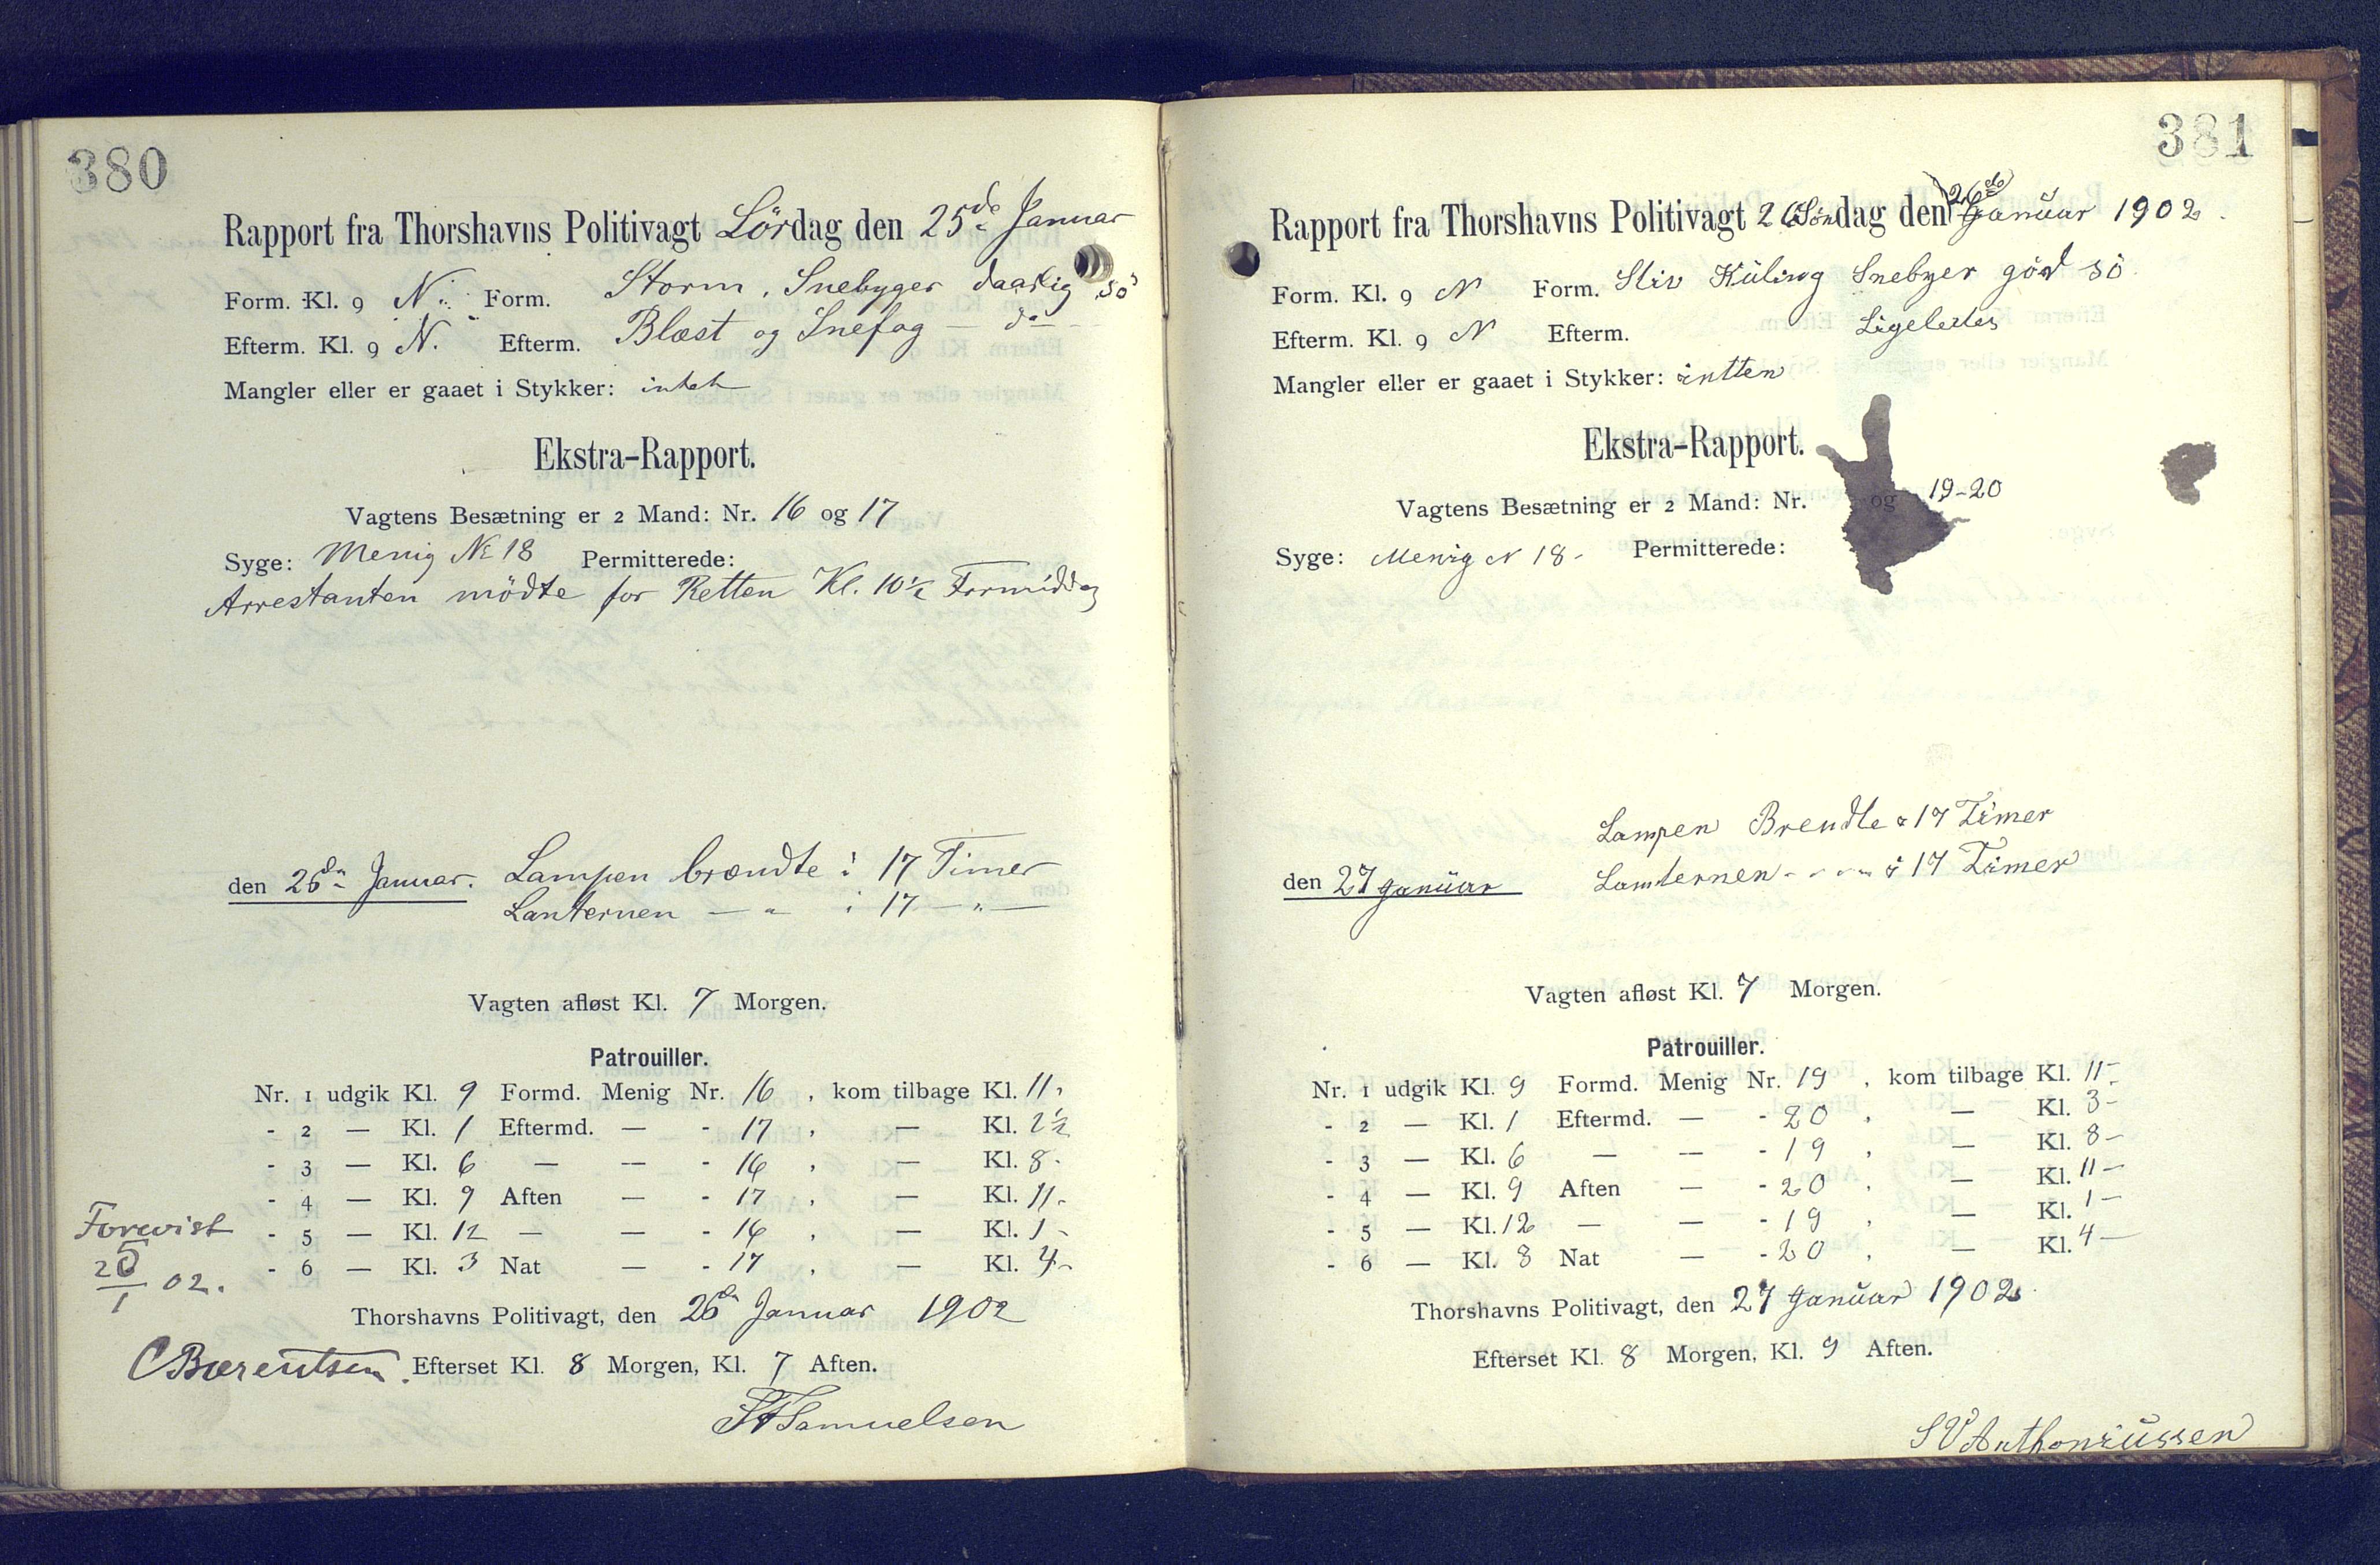 380
Rapport fra Thorshavns Politivagt Lördag den 25de Januar
Form. Kl. 9 N. Form. Storm, Snebyger daarlig Sö
Efterm. Kl. 9 N. Efterm. Blæst og Snefog — do —
Mangler eller er gaaet i Stykker: intet
Ekstra-Rapport.
Vagtens Besætning er 2 Mand: Nr. 16 og 17
Syge: Menig No 18 Permitterede:
Arrestanten mödte for Retten Kl. 10½ Formiddag
den 26de Januar. Lampen brændte i 17 Timer
Lanternen — " — i 17 — " —
Vagten afløst Kl. 7 Morgen.
Patrouiller.
Nr. 1 udgik Kl. 9 Formd. Menig Nr. 16 , kom tilbage Kl. 11 -
- 2 — Kl. 1 Eftermd. — - 17 , — Kl. 2½
- 3 — Kl. 6 — — - 16 , — Kl. 8 -
- 4 — Kl. 9 Aften — - 17 , — Kl. 11 -
- 5 — Kl. 12 — — - 16 , — Kl. 1 -
- 6 — Kl. 3 Nat — - 17 , — Kl. 4 -
Forevist
26/1 02.
Thorshavns Politivagt, den 26de Januar 1902
CBærentsen. Efterset Kl. 8 Morgen, Kl. 7 Aften.
Samuelsen
381
Rapport fra Thorshavns Politivagt 26 Søndag den 26de Januar 1902.
Form. Kl. 9 N Form. Stiv Küling Snebyer göd sö
Efterm. Kl. 9 N Efterm. Ligeledes
Mangler eller er gaaet i Stykker: intten
Ekstra-Rapport.
Vagtens Besætning er 2 Mand: Nr. og 19-20
Syge: Menig N 18 - Permitterede:
Lampen Brendte i 17 Timer
den 27 Januar Lamternen - - - - i 17 Timer
Vagten afløst Kl. 7 Morgen.
Patrouiller.
Nr. 1 udgik Kl. 9 Formd. Menig Nr. 19 , kom tilbage Kl. 11 -
- 2 — Kl. 1 Eftermd. — - 20 , — Kl. 3 -
- 3 — Kl. 6 — — - 19 , — Kl. 8 -
- 4 — Kl. 9 Aften — - 20 , — Kl. 11 -
- 5 — Kl. 12 — — - 19 , — Kl. 1 -
- 6 — Kl. 3 Nat — - 20 , — Kl. 4 -
Thorshavns Politivagt, den 27 Januar 1902.
Efterset Kl. 8 Morgen, Kl. 9 Aften.
S V Anthoniussen